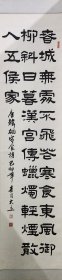 春城無處不飛花寒食東風御
柳斜日暮漢宮傳蠟燭輕煙散
入五侯家